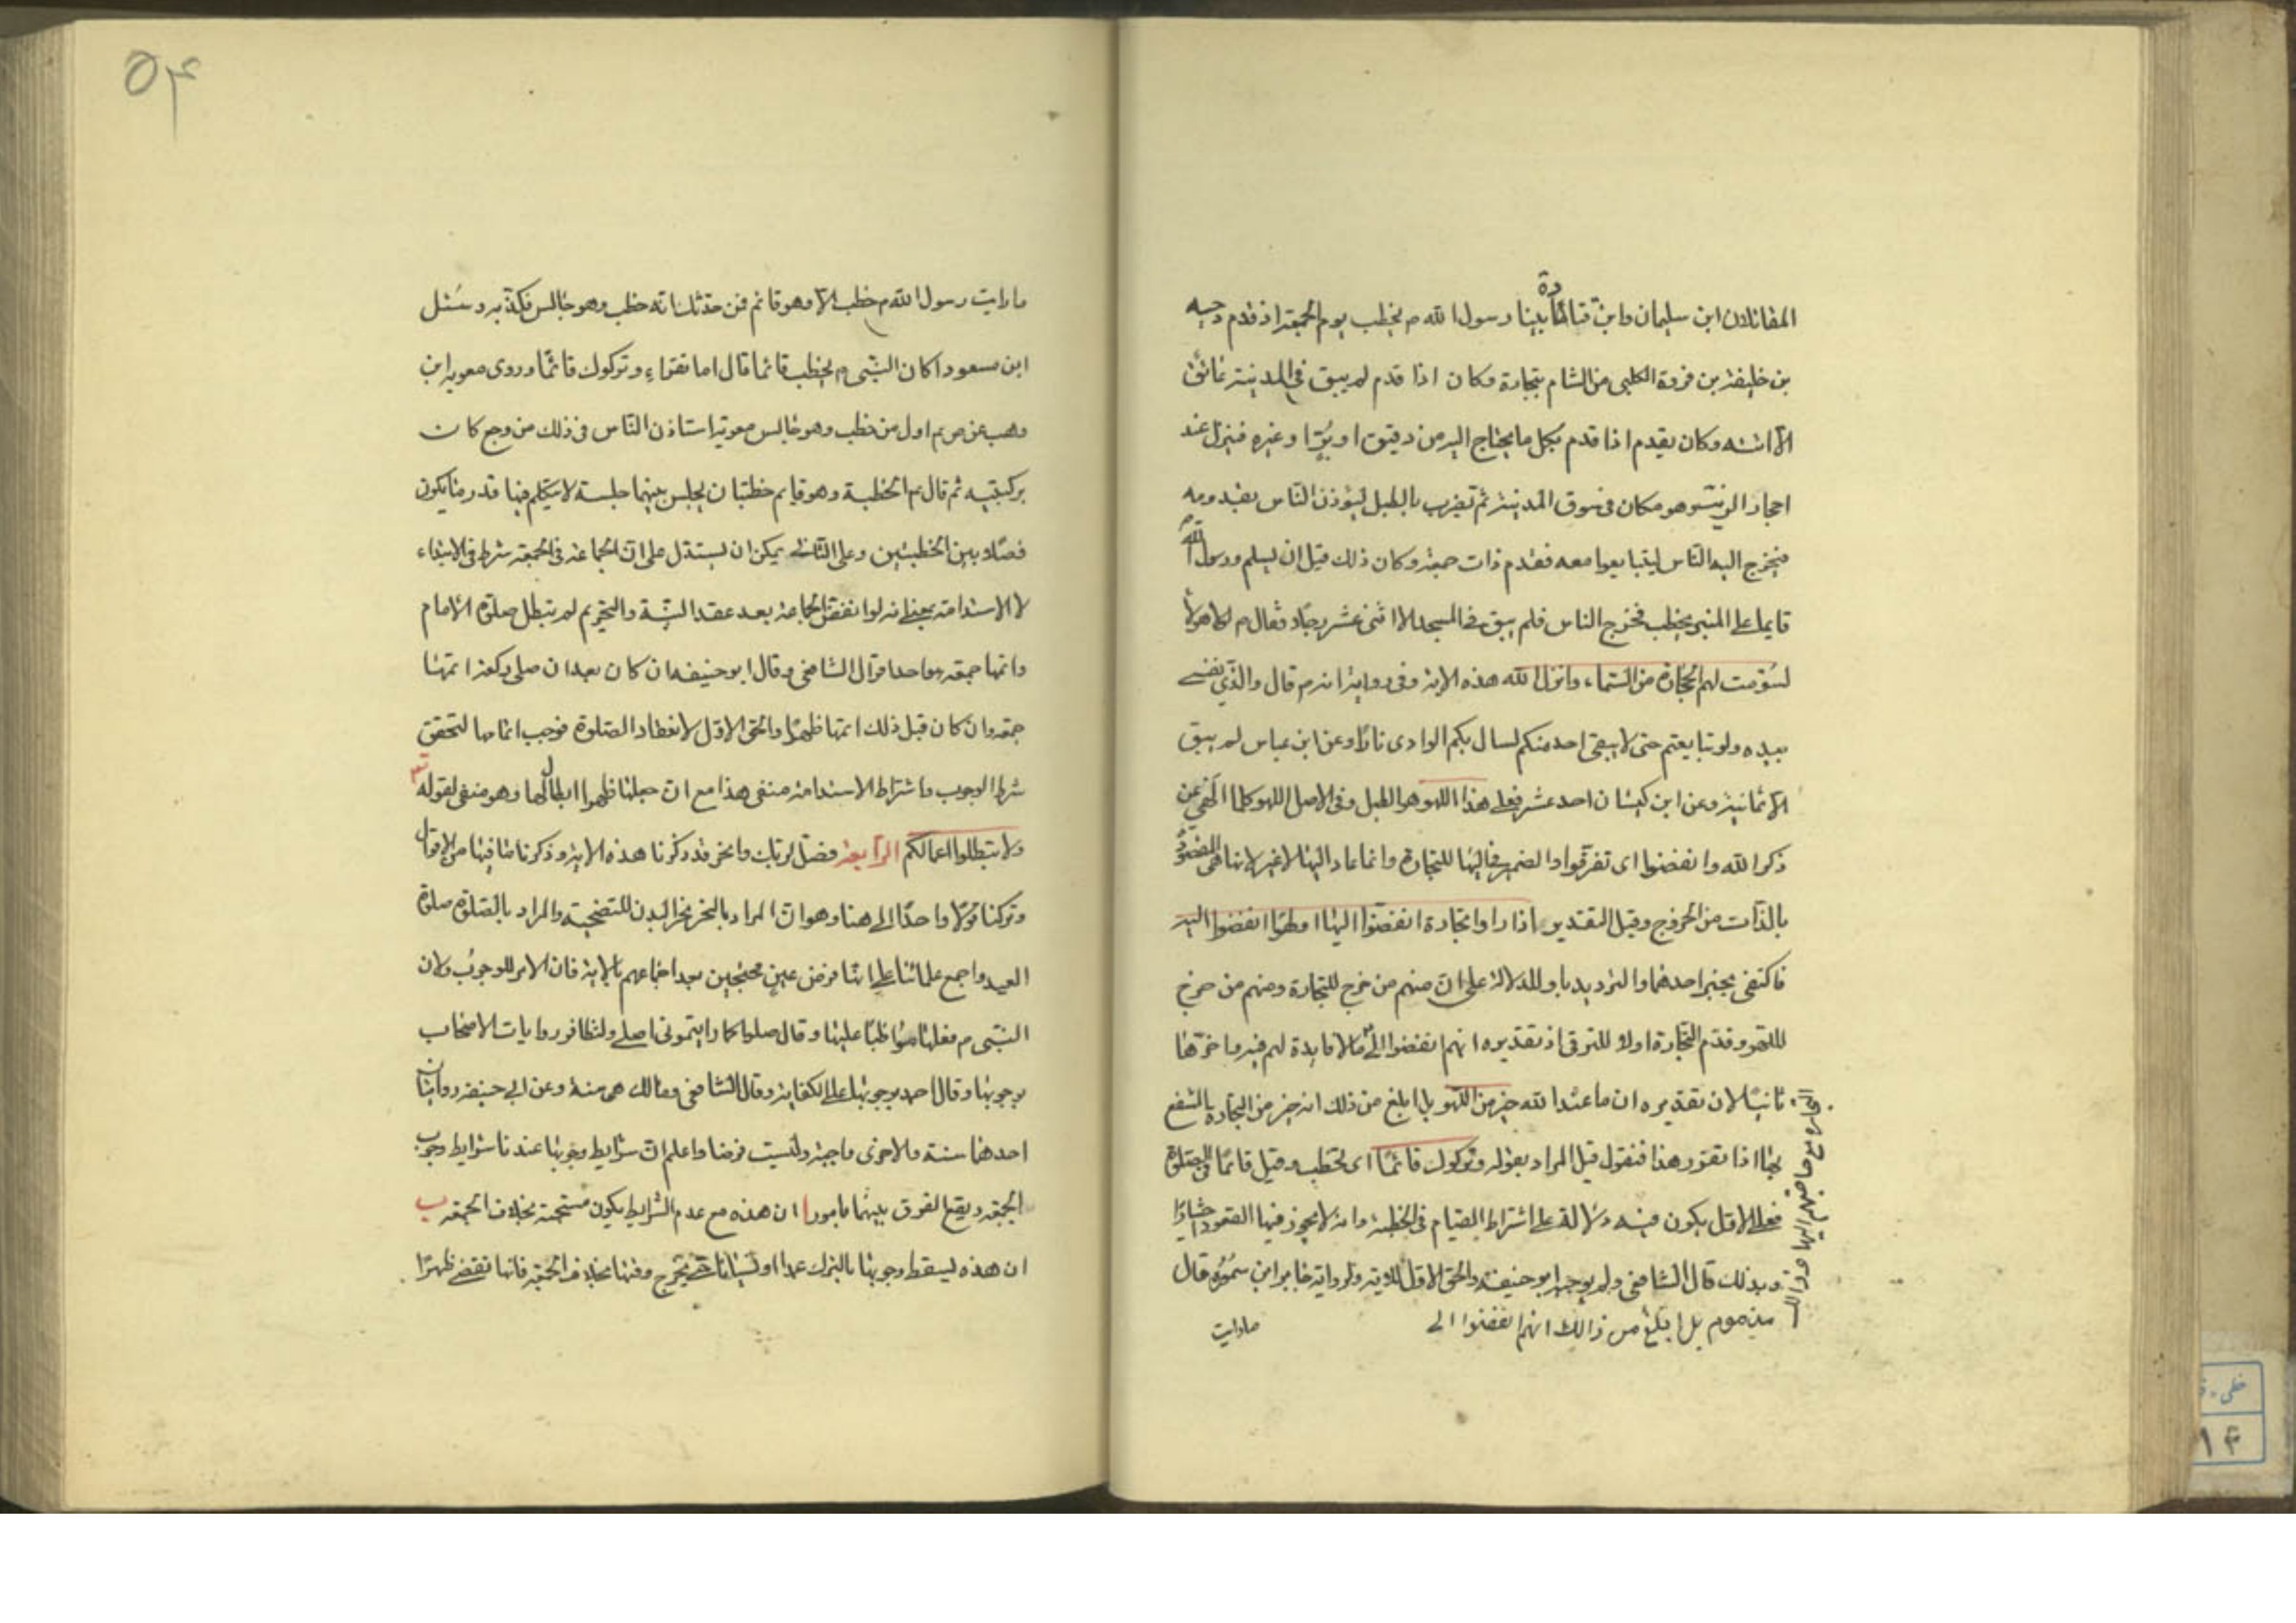 المقاتلان ابن سليمان وابن قتادة قالا بينا رسول الله م يخطب يوم الجمعة اذ قدم دحيه
بن خليفة بن فروة الكلبى من الشام بتجارة وكان اذا قدم لم يبق فى المدينة عاتق
الا اتته وكان يقدم اذا قدم بكل ما يحتاج اليه من دقيق او بُرّ او غيره فينزل عند
احجار الزيت وهو مكان فى سوق المدينة ثم تضرب بالطبل ليؤذن الناس بقدومه
فيخرج اليه الناس ليتبايعوا معه فقدم ذات جمعة وكان ذلك قبل ان يسلم ورسول الله
قايما على المنبر يخطب فخرج الناس فلم يبق فى المسجد الا اثنى عشر رجلا فقال م لولا هؤلا
لسُوّمت لهم الحجارة من السماء وانزل الله هذه الاية وفى رواية انه م قال والذى نفسى
بيده ولو تبايعتم حتى لا يبقى احد منكم لسال بكم الوادى نارًا وعن ابن عباس لم يبق
الا ثمانية وعن ابن كيسان احد عشر فعلى هذا اللهو هو الطبل وفى الاصل اللهو كلما الهى عن
ذكر الله وانفضوا اى تفرقوا والضمير فى اليها للتجارة وانما عاد اليها لا غير لانها هى المقصودة
بالذات من الخروج وقيل التقدير اذا راوا تجارة انفضّوا اليها او لهوًا انفضوا اليه
فاكتفى بخبر احدهما والترديد باو للدلالة على انّ منهم من خرج للتجارة ومنهم من خرج
للّهو وقدّم التجارة اولا للترقى اذ تقديره انهم انفضوا الى ما لا فايدة لهم فيه واخّرها
ثانيًا لان تقديره ان ما عند الله خير من اللّهو بل ابلغ من ذلك انه خير من التجارة المنتفع
بها اذا تقرر هذا فنقول قيل المراد بقوله وتركوك قائمًا اى تخطب وقيل قائمًا فى الصلوة
فعلى الاول يكون فيه دلالة على اشتراط القيام فى الخطبة وانه لا يجوز فيها القعود اختيارًا
وبذلك قال الشافعى ولم يوجبه ابو حنيفة والحق الاول للاية ولرواية جابر ابن سمُرة قال
مذموم بل ابلغ من ذالك انهم انفضوا الى
التجارة مع حاجتهم اليها وذالك
ما رايت
۵۴
ما رايت رسول الله م خطب الا وهو قائم فمن حدثك انه خطب وهو جالس فكذبه وسُئل
ابن مسعود اكان النبى م يخطب قائما قال اما تقراء وتركوك قائمًا وروى معوية ابن
وهب عن ص م اول من خطب وهو جالس معوية استاذن الناس فى ذلك من وجع كان
بركبتيه ثم قال م الخطبة وهو قايم خطبتان يجلس بينهما جلسة لا يتكلم فيها قدر ما يكون
فصلا بين الخطبتين وعلى الثانى يمكن ان يستدل على انّ الجماعة فى الجمعة شرط فى الابتداء
لا الاستدامة بمعنى انه لو انفضّ الجماعة بعد عقد النيّة والتحريم لم تبطل صلوة الامام
واتمها جمعة وهو احد اقوال الشافعى وقال ابو حنيفه ان كان بعد ان صلى ركعة اتمها
جمعة وان كان قبل ذلك اتمها ظهرًا والحق الاول لانعقاد الصلوة فوجب اتمامها لتحقق
شرط الوجوب واشتراط الاستدامة منفى هذا مع ان جعلها ظهرا ابطال لها وهو منفى لقوله تع
ولا تبطلوا اعمالكم الرّابعة فصل لربك وانحر قد ذكرنا هذه الاية وذكرنا ما فيها من الاقوال
وتركنا قولا واحدًا الى هنا وهو ان المراد بالنحر نحر البدن للتضحية والمراد بالصّلوة صلوة
العيد واجمع علمائنا على انها فرض عين محتجين بعد اجماعهم بالاية فان الامر للوجوب ولان
النبّى م فعلها مواظبًا عليها وقال صلوا كما رايتمونى اصلى ولتظافر روايات الاصحاب
بوجوبها وقال احمد بوجوبها على الكفاية وقال الشافعى ومالك هى سنة وعن ابى حنيفة روايتان
احدهما سنة والاخرى واجبة وليست فرضا واعلم ان شرايط وجوبها عندنا شرايط وجوب
الجمعة ويقع الفرق بينهما بامور ا ان هذه مع عدم الشرايط يكون مستحبة بخلاف الجمعة ب
ان هذه يسقط وجوبها بالترك عمدا او نسيانا حتى يخرج وقتها بخلاف الجمعة فانها تقضى ظهرًا
خطى
۱۴